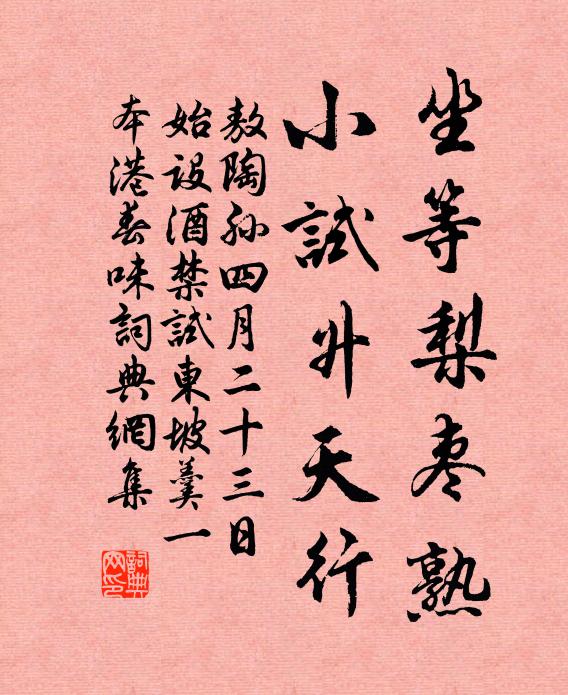 坐等梨枣熟
小試升天行
敖陶孙四月二十三日
始设酒禁試東坡羹一
本港春味詞典網集
詞典网印